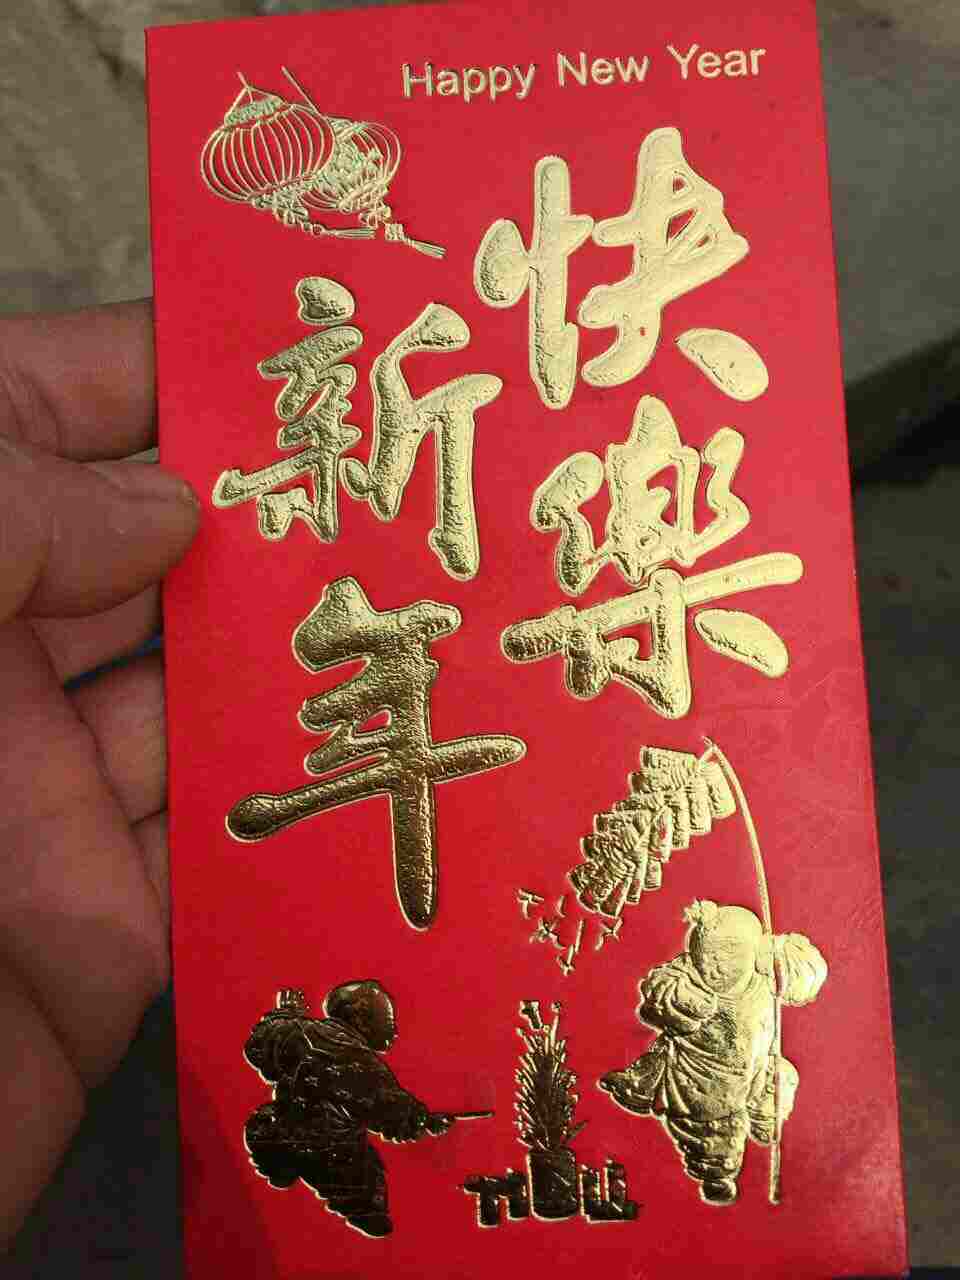 Happy New Year
新年
快樂